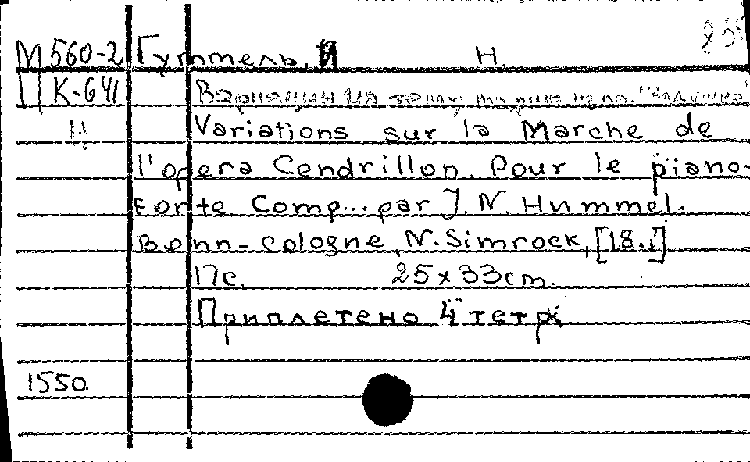 М 560-2 Гуммель, И Н.
К-641 Вариации на тему марша из оп.
Variations sur la Marche de
l'opera Cendrillon. Pour le piano-
Forte Comp... par J. N. Hummel.
Bonn-Cologne, N. Simrock, [18..]
17c. 25x33cm.
Приплетено 4 тетр.
1550